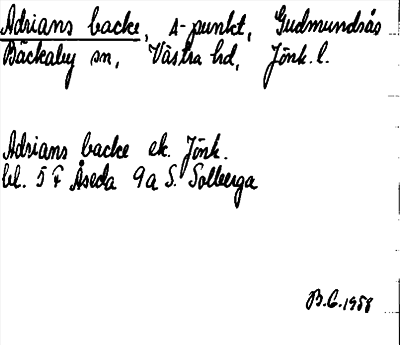 Adrians backe, s-punkt, Gudmundsås
Bäckaby sn, Västra hd, Jönk. l.
Adrians backe ek. Jönk.
bl. 5 F Åseda 9a S. Solberga
B.G. 1958